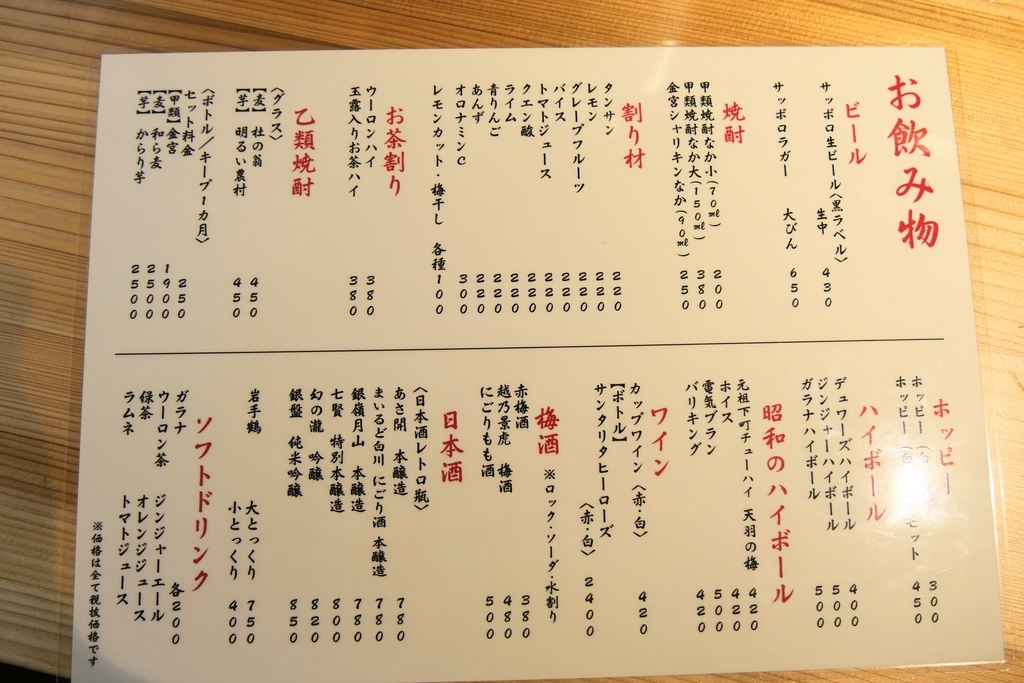 お飲み物
ビール
サッポロ生ビール〈黒ラベル〉
生中 430
サッポロラガー 大びん 650
焼酎
甲類焼酎なか小(70ml) 200
甲類焼酎なか大(150ml) 380
金宮シャリキンなか(90ml) 250
割り材
タンサン 220
レモン 220
グレープフルーツ 220
バイス 220
トマトジュース 220
クエン酸 220
ライム 220
青りんご 220
あんず 220
オロナミンC 300
レモンカット・梅干し 各種100
お茶割り
ウーロンハイ 380
玉露入りお茶ハイ 380
乙類焼酎
〈グラス〉
【麦】杜の翁 450
【芋】明るい農村 450
〈ボトル/キープ1カ月〉
セット料金 250
【甲類】金宮 1900
【麦】和ら麦 2500
【芋】からり芋 2500
ホッピー
ホッピー 300
ホッピー セット 450
ハイボール
デュワーズハイボール 400
ジンジャーハイボール 500
ガラナハイボール 500
昭和のハイボール
元祖下町チューハイ 天羽の梅 420
ホイス 420
電気ブラン 500
バリキング 420
ワイン
カップワイン〈赤・白〉 420
【ボトル】
サンタリタヒーローズ
〈赤・白〉 2400
梅酒 ※ロック・ソーダ・水割り
赤梅酒 380
越乃景虎 梅酒 480
にごりもも酒 500
日本酒
〈日本酒レトロ瓶〉
あさ開 本醸造 780
まいるど白川 にごり酒 本醸造 780
銀嶺月山 本醸造 780
七賢 特別本醸造 880
幻の瀧 吟醸 820
銀盤 純米吟醸 850
岩手鶴 大とっくり 750
小とっくり 400
ソフトドリンク
各200
ガラナ ジンジャーエール
ウーロン茶 オレンジジュース
緑茶 トマトジュース
ラムネ
※価格は全て税抜価格です